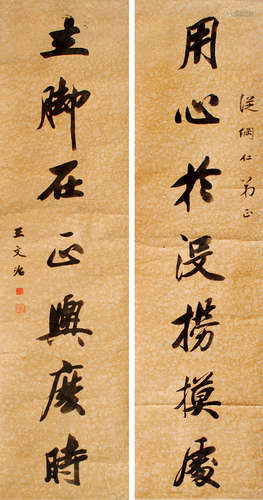 用心於没撈摸處
從綱仁弟正
立脚在正與麽時
王文治